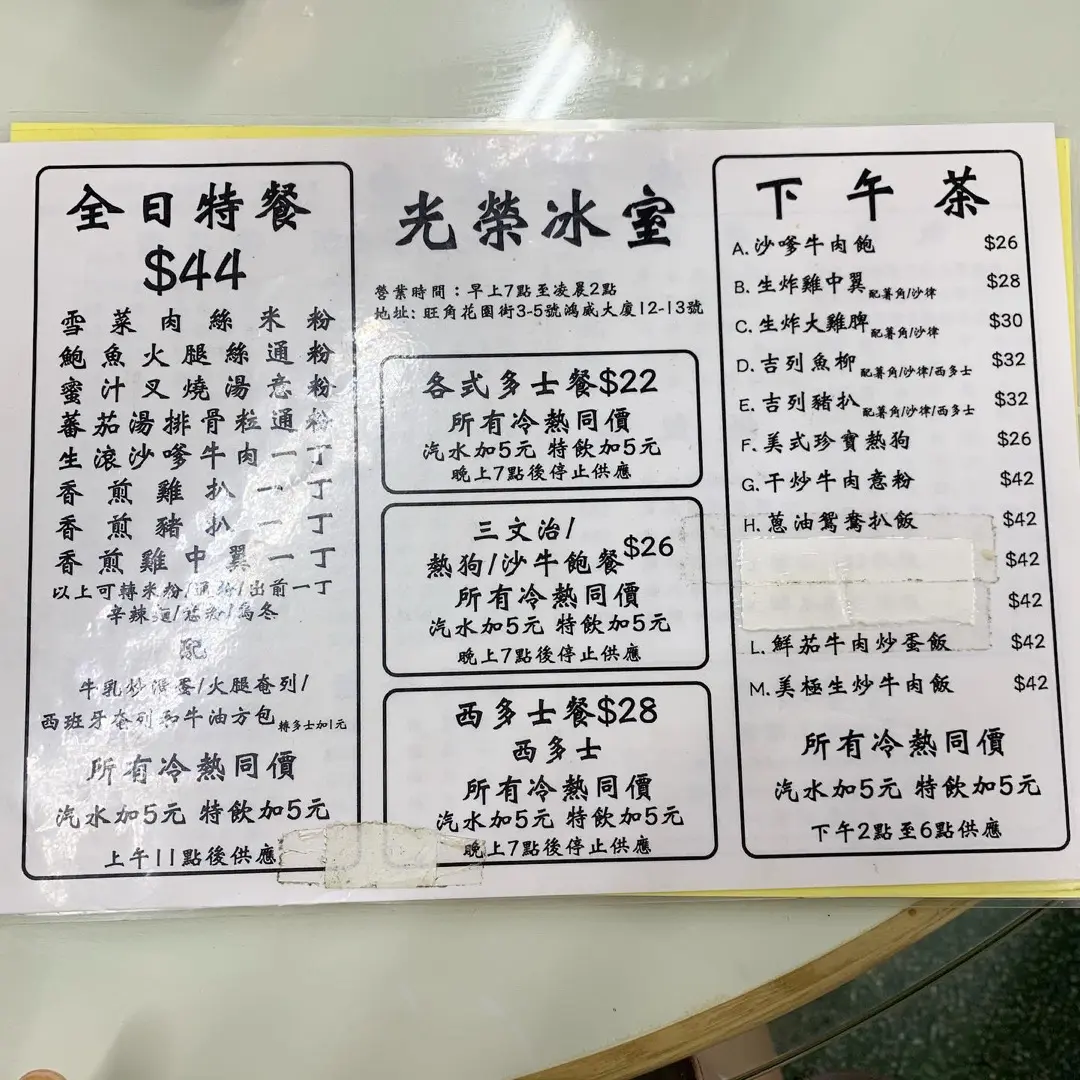 全日特餐
$44
雪菜肉絲米粉
鮑魚火腿絲通粉
蜜汁叉燒湯意粉
蕃茄湯排骨粒通粉
生滾沙嗲牛肉一丁
香煎雞扒一丁
香煎豬扒一丁
香煎雞中翼一丁
以上可轉米粉/通粉/出前一丁
辛辣麵/意粉/烏冬
配
牛乳炒滑蛋/火腿奄列/
西班牙奄列和牛油方包轉多士加1元
所有冷熱同價
汽水加5元 特飲加5元
上午11點後供應
光榮冰室
營業時間：早上7點至凌晨2點
地址: 旺角花園街3-5號鴻威大廈12-13號
各式多士餐$22
所有冷熱同價
汽水加5元 特飲加5元
晚上7點後停止供應
三文治/
熱狗/沙牛飽餐$26
所有冷熱同價
汽水加5元 特飲加5元
晚上7點後停止供應
西多士餐$28
西多士
所有冷熱同價
汽水加5元 特飲加5元
晚上7點後停止供應
下午茶
A. 沙嗲牛肉飽 $26
B. 生炸雞中翼配薯角/沙律 $28
C. 生炸大雞脾配薯角/沙律 $30
D. 吉列魚柳配薯角/沙律/西多士 $32
E. 吉列豬扒配薯角/沙律/西多士 $32
F. 美式珍寶熱狗 $26
G. 干炒牛肉意粉 $42
H. 蔥油鴛鴦扒飯 $42
$42
$42
L. 鮮茄牛肉炒蛋飯 $42
M. 美極生炒牛肉飯 $42
所有冷熱同價
汽水加5元 特飲加5元
下午2點至6點供應